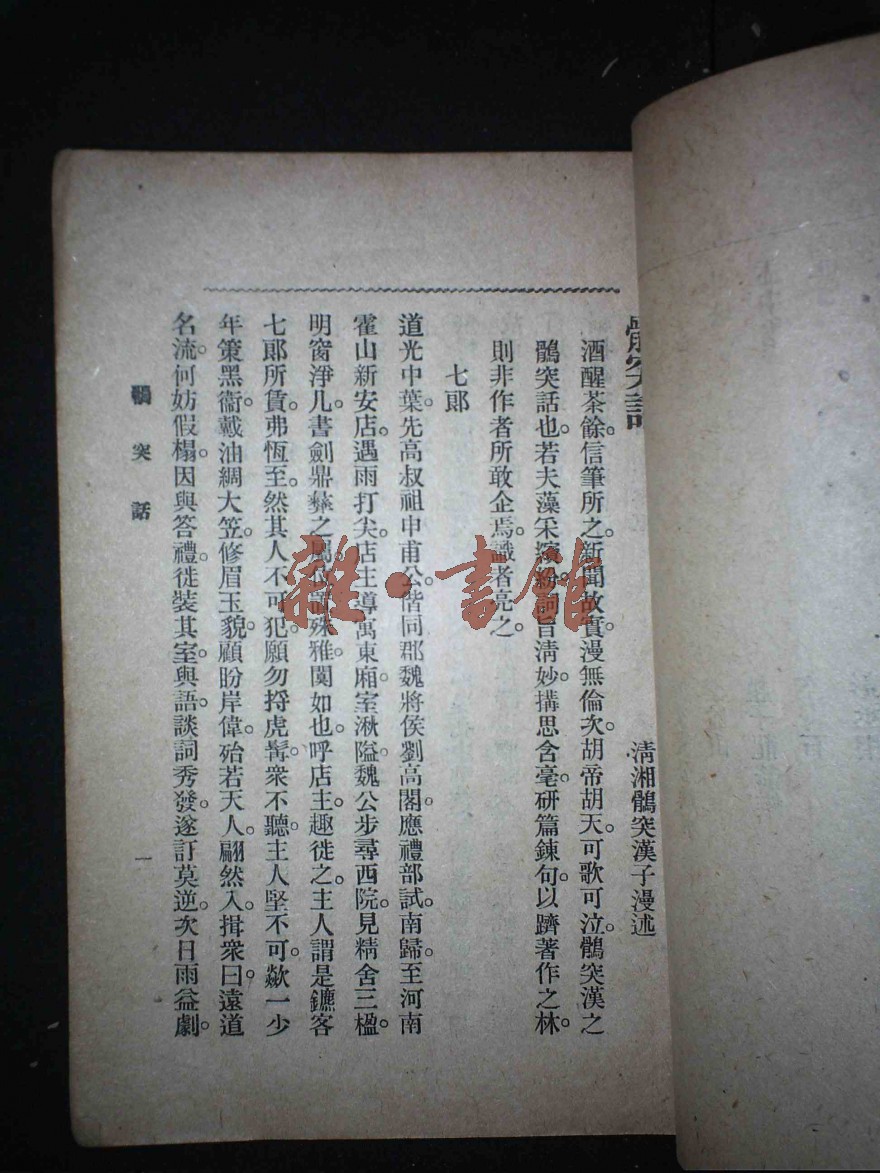 鶻突話
清湘鶻突漢子漫述
酒醒茶餘。信筆所之。新聞故實。漫無倫次。胡帝胡天。可歌可泣。鶻突漢之
鶻突話也。若夫藻采繽紛。詞旨淸妙。搆思含毫。硏篇鍊句。以躋著作之林。
則非作者所敢企焉。識者亮之。
七郞
道光中葉。先高叔祖申甫公。偕同郡魏將侯劉高閣。應禮部試。南歸。至河南
霍山新安店。遇雨打尖。店主導寓東廂。室湫隘。魏公步尋西院。見精舍三楹。
明窗淨几。書劍鼎彝之屬。位置殊雅。闃如也。呼店主。趣徙之。主人謂是鑣客
七郞所賃。弗恆至。然其人不可犯。願勿捋虎鬚。衆不聽。主人堅不可。歘一少
年策黑衞。戴油綢大笠。修眉玉貌。顧盼岸偉。殆若天人。翩然入。揖衆曰。遠道
名流。何妨假榻。因與答禮。徙裝其室。與語。談詞秀發。遂訂莫逆。次日雨益劇。
鶻突話
一
雜·書館